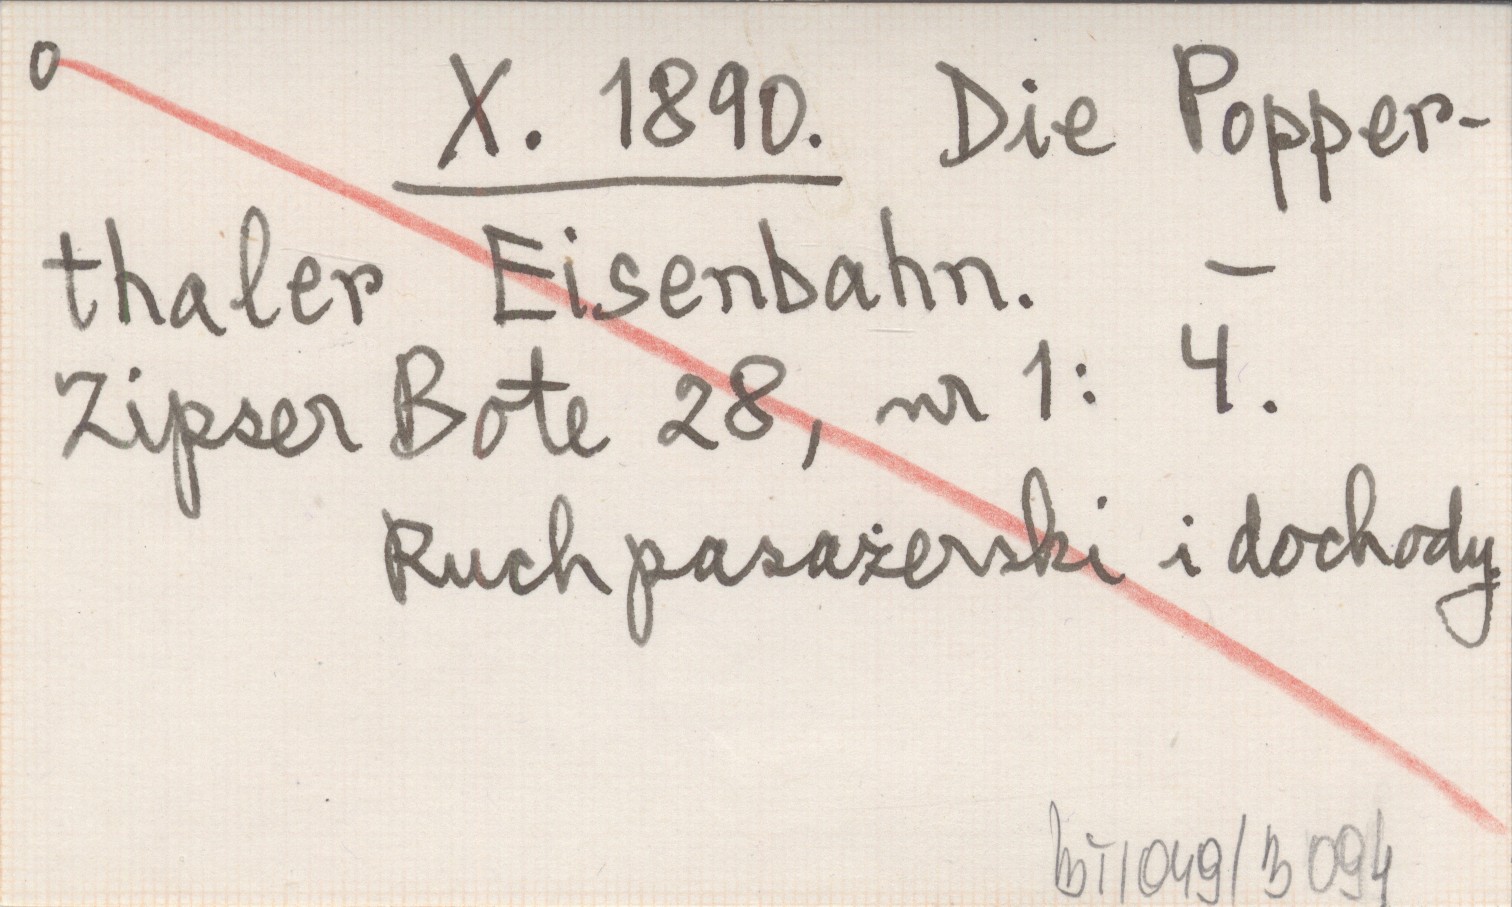 o X. 1890. Die Popper-
thaler Eisenbahn. –
Zipser Bote 28, nr 1: 4.
Ruch pasażerski i dochody.
BT/049/3094